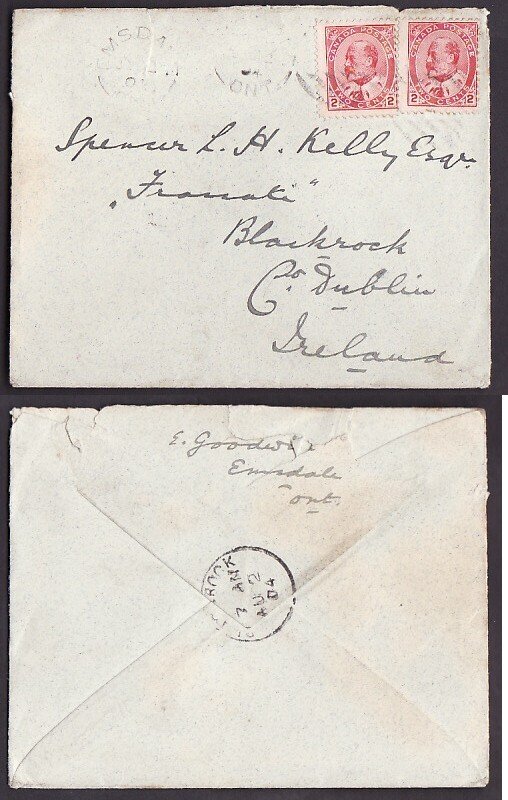 CANADA POSTAGE
CANADA POSTAGE
2 2
TWO CENTS
2 2
TWO CENTS
MSDA
ONT
Spencer L. H. Kelly Esqr.
Blackrock
Co. Dublin
Ireland
E. Goodwi
Emsdale
Ont.
ROCK
7 AM
AU 2
04